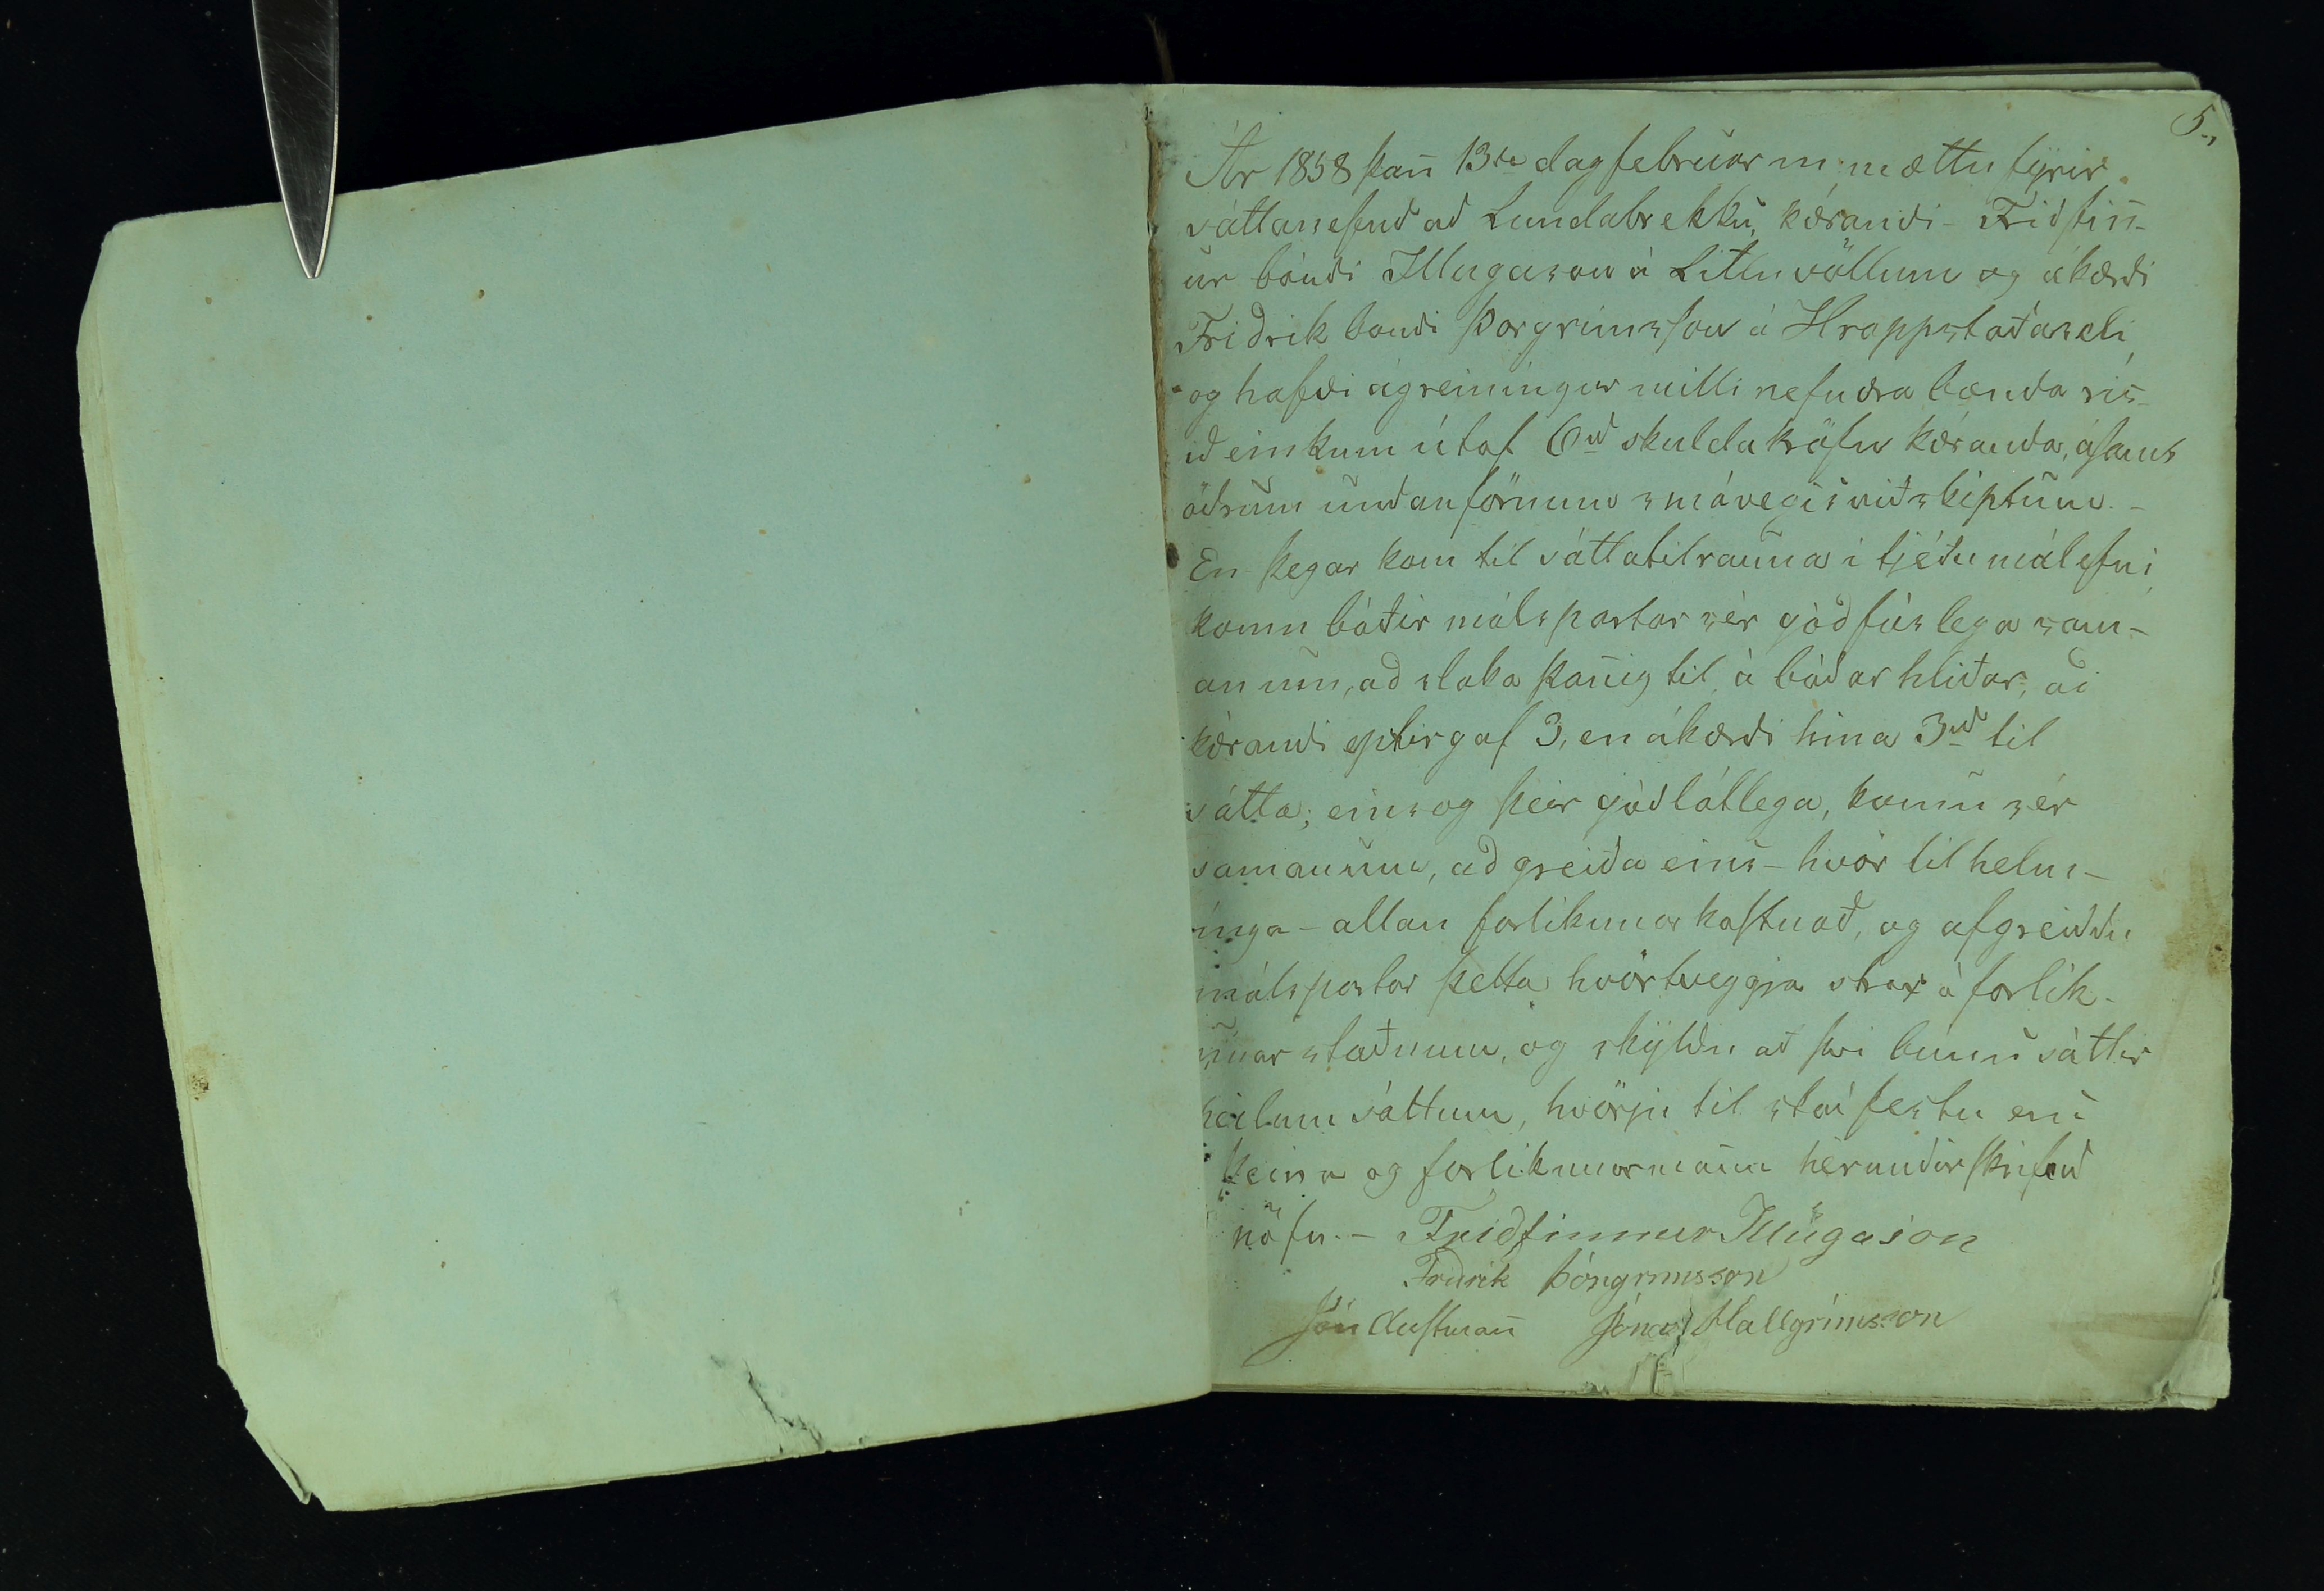 5.,
Ár 1858 þan̄ 13da dag februar m: mættu fyrir
sáttanefnd ad Lundabrekku, kærandi - Friðfin̄-
ur bóndi Illugason á Litluvöllum og ákærði
Fridrik bondi Þorgrímsson á Hrappstaðaseli,
og hafði ágreiningur milli nefndra bænda ris-
ið einkum útaf 6rd skuldakröfu kæranda, ásamt
öðrum undanförnum smávegis viðskiptum. -
En þegar kom til sáttatilrauna i tjéðu málefni
komu báðir málspartar sér góðfúslega sam-
an um, ad slaka þan̄ig til á báðar hliðar, að
kærandi eptirgaf 3, en ákærði hina 3rd til
sátta; eins og þeir góðlátlega, komu sér
saman um, ad greiða eins - hvör til helm-
ínga - allan forlikunar kostnað, og afgreiddu
málspartar þetta hvörtveggja strax á forlík-
unar staðnum, og skyldu að þvi búnu sáttir
heilum sáttum, hvörju til staðfestu eru
þeirra og forlikunarman̄a hérundirskrifuð
nöfn. - Friðfinnur Illugason
Fridrik Þórgrímsson
Jón Austman̄ Jónas Hallgrímsson